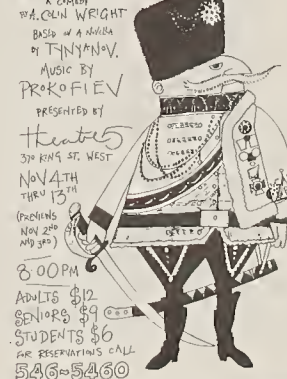 A COMEDY
BY A. COLIN WRIGHT
BASED ON A NOVELLA
BY TYNYANOV.
MUSIC BY
PROKOFIEV
PRESENTED BY
theatre5
370 KING ST. WEST
NOV 4TH
THRU 13TH
(PREVIEWS
NOV 2ND
AND 3RD)
8:00PM
ADULTS $12
SENIORS $9
STUDENTS $6
FOR RESERVATIONS CALL
546-5460